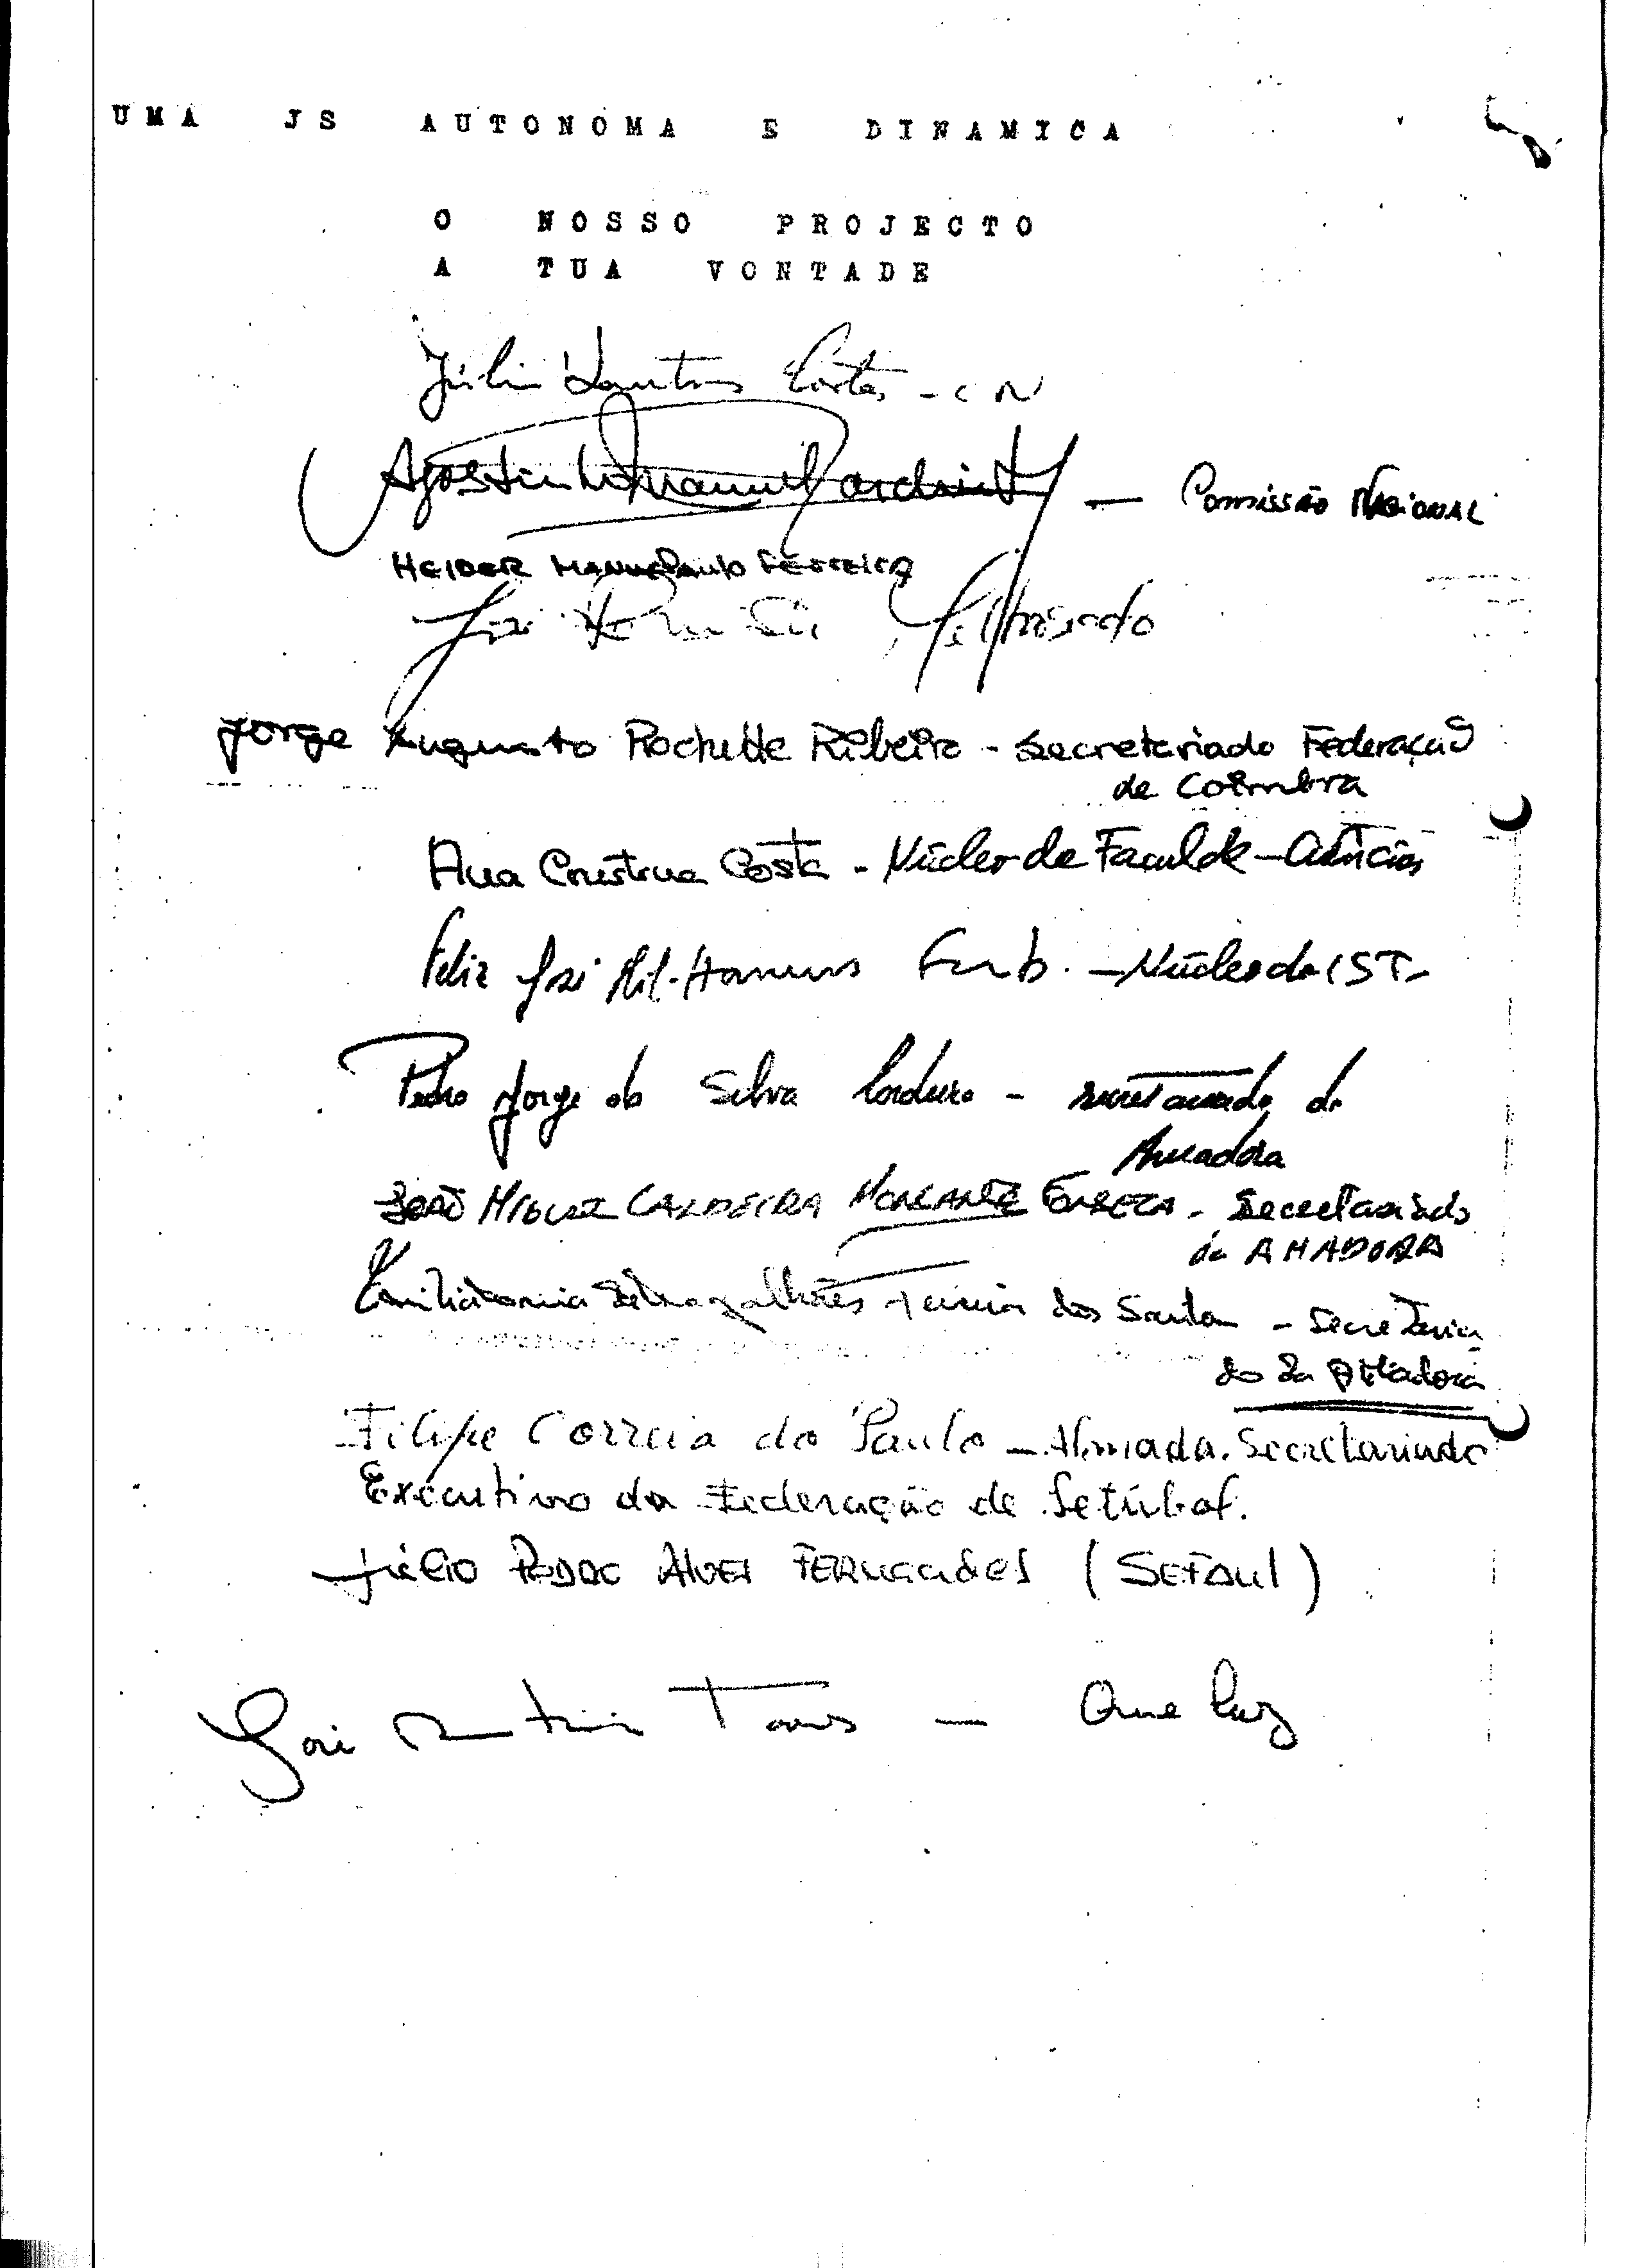 UMA JS AUTONOMA E DINAMICA
O NOSSO PROJECTO
A TUA VONTADE
Júlio Santos Cortes - CN
Agostinho Manuel — Comissão Nacional
HELDER MANUEL PAULO FERREIRA
José
Jorge Augusto Rochette Ribeiro - Secretariado Federação
de Coimbra
Ana Cristina Costa - Núcleo de Faculd
Feliz José Mil-Homens — Núcleo do IST
Pedro Jorge da Silva Cordeiro - secretariado da
Amadora
JOÃO MIGUEL CALDEIRA FONSECA - Secretariado
da AMADORA
Magalhães dos Santos - Secretaria
do da Amadora
Filipe Correia do Paulo - Almada. Secretariado
Executivo da Federação de Setúbal.
Júlio PEDRO ALVES FERNANDES (SETÚBAL)
José Tavares — Queluz